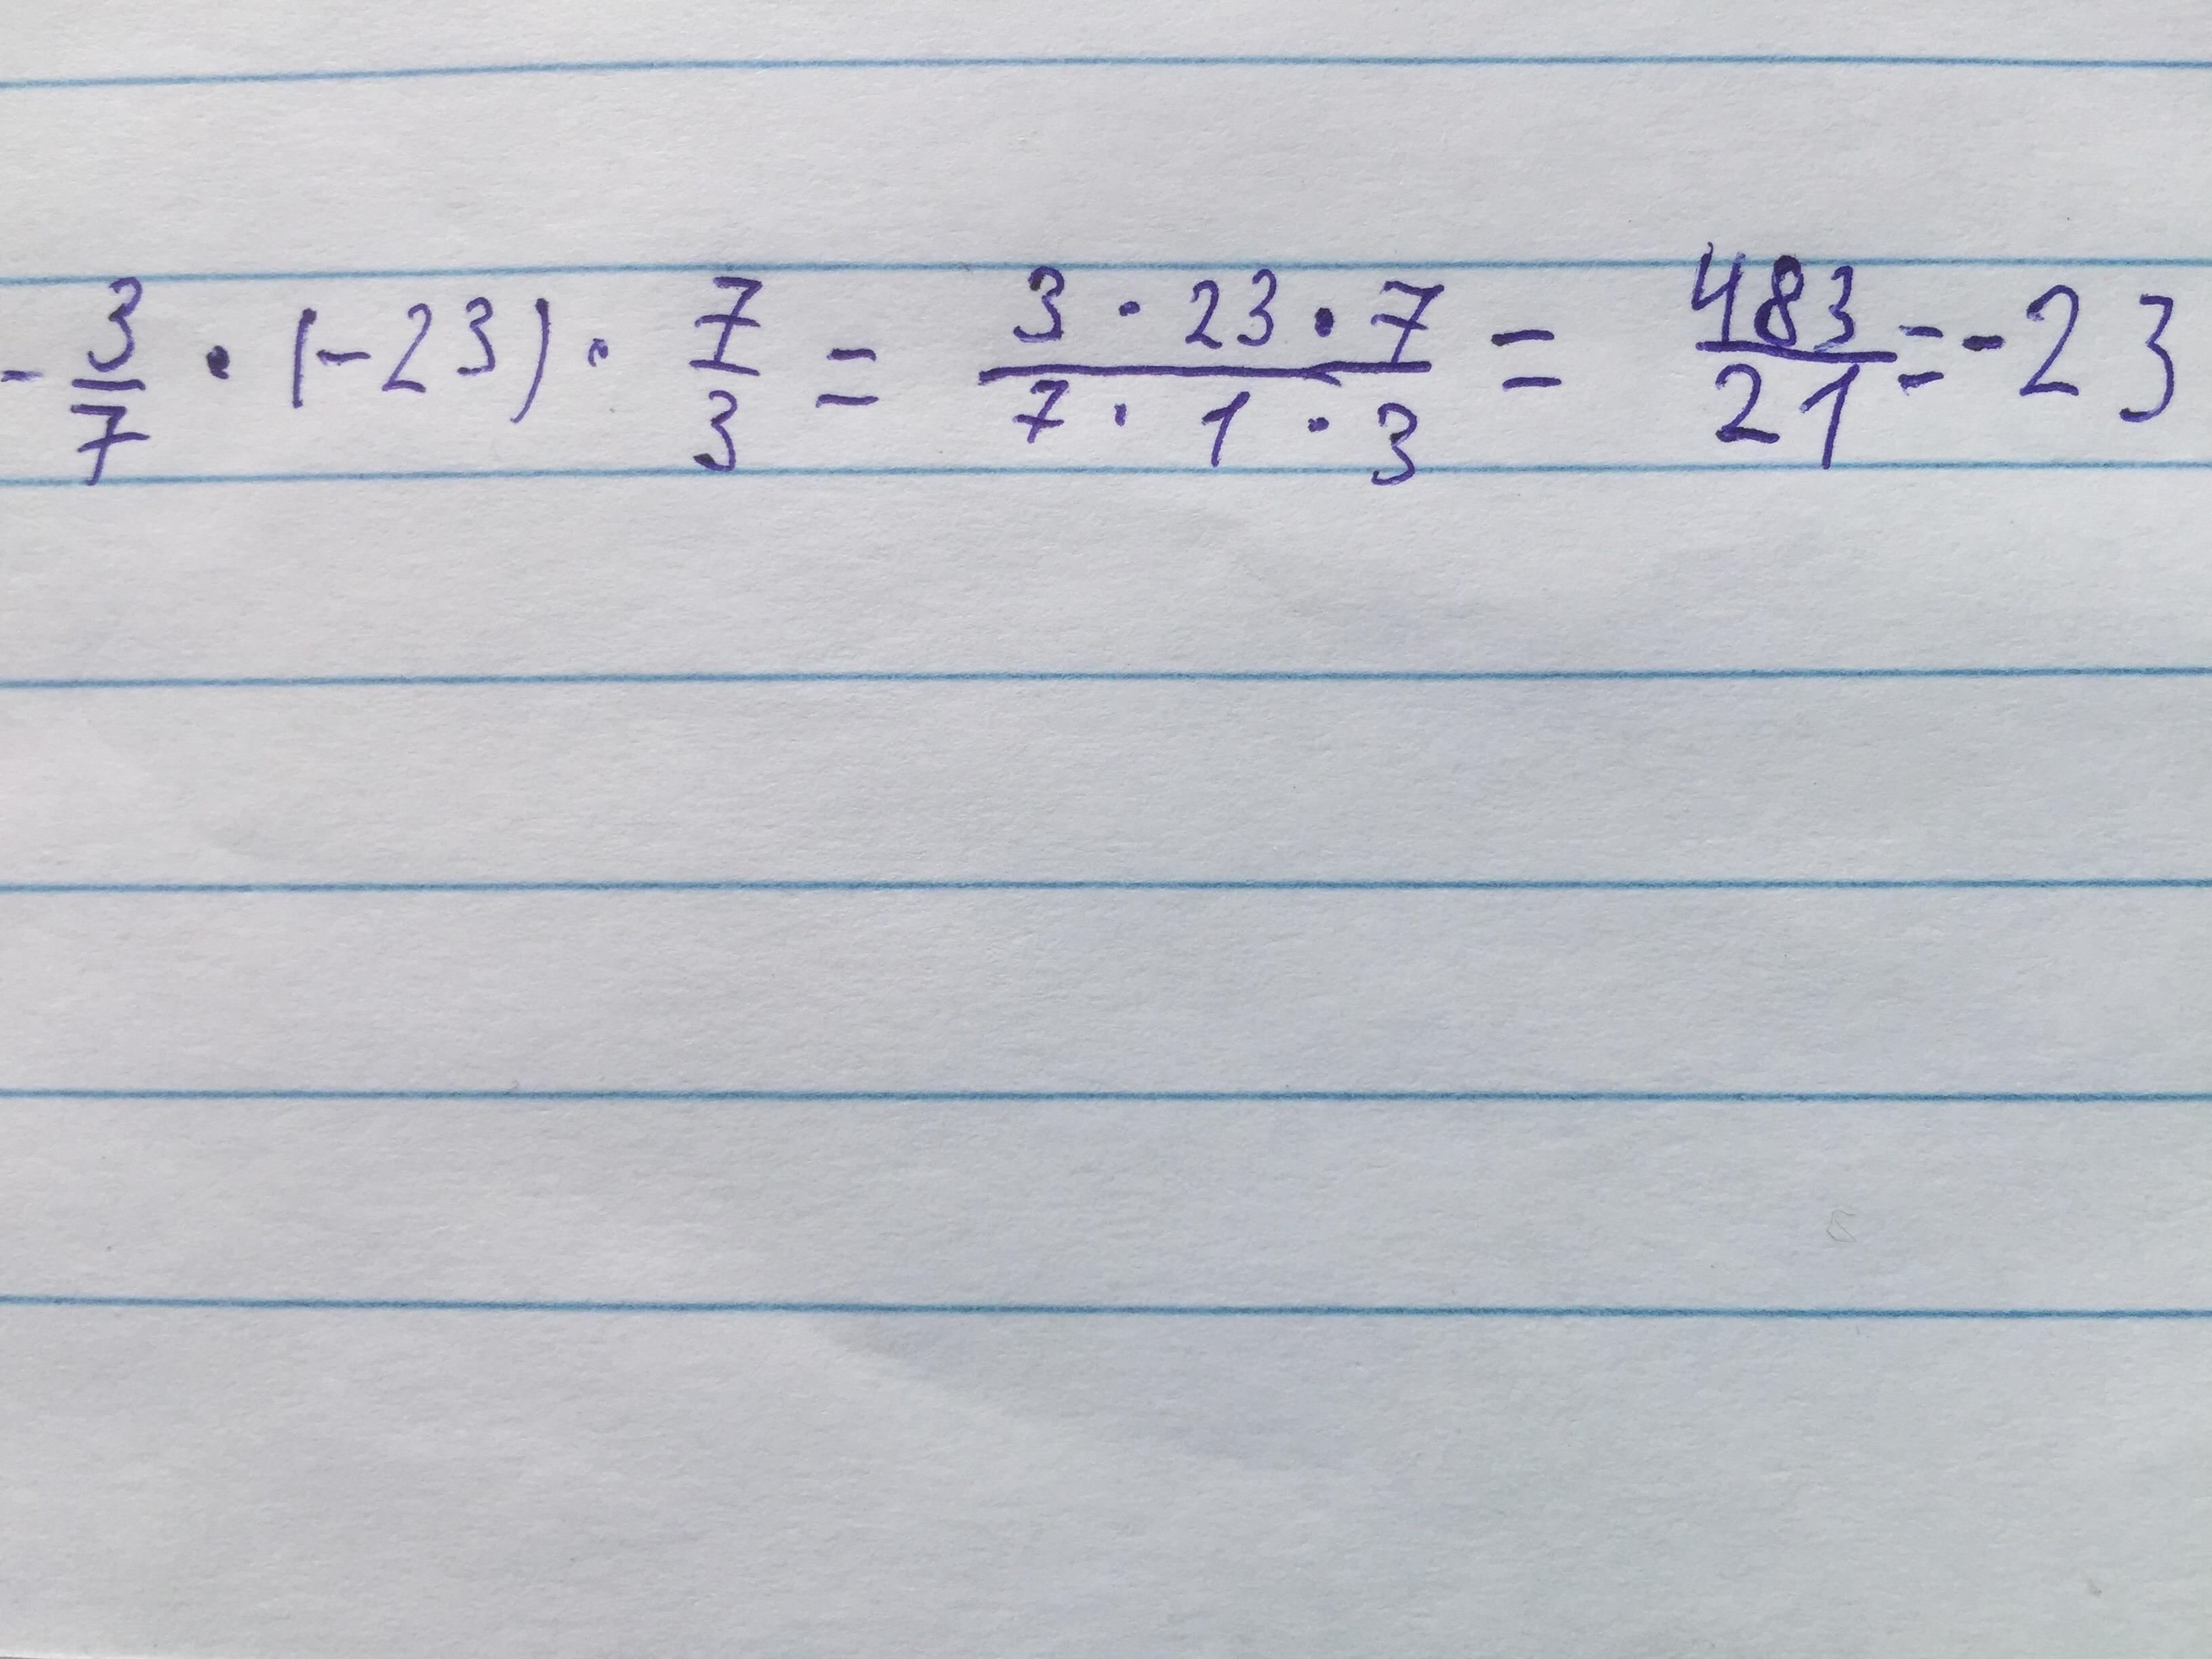 - 3/7 · (-23) · 7/3 = 3 · 23 · 7 / 7 · 1 · 3 = 483/21 = -23